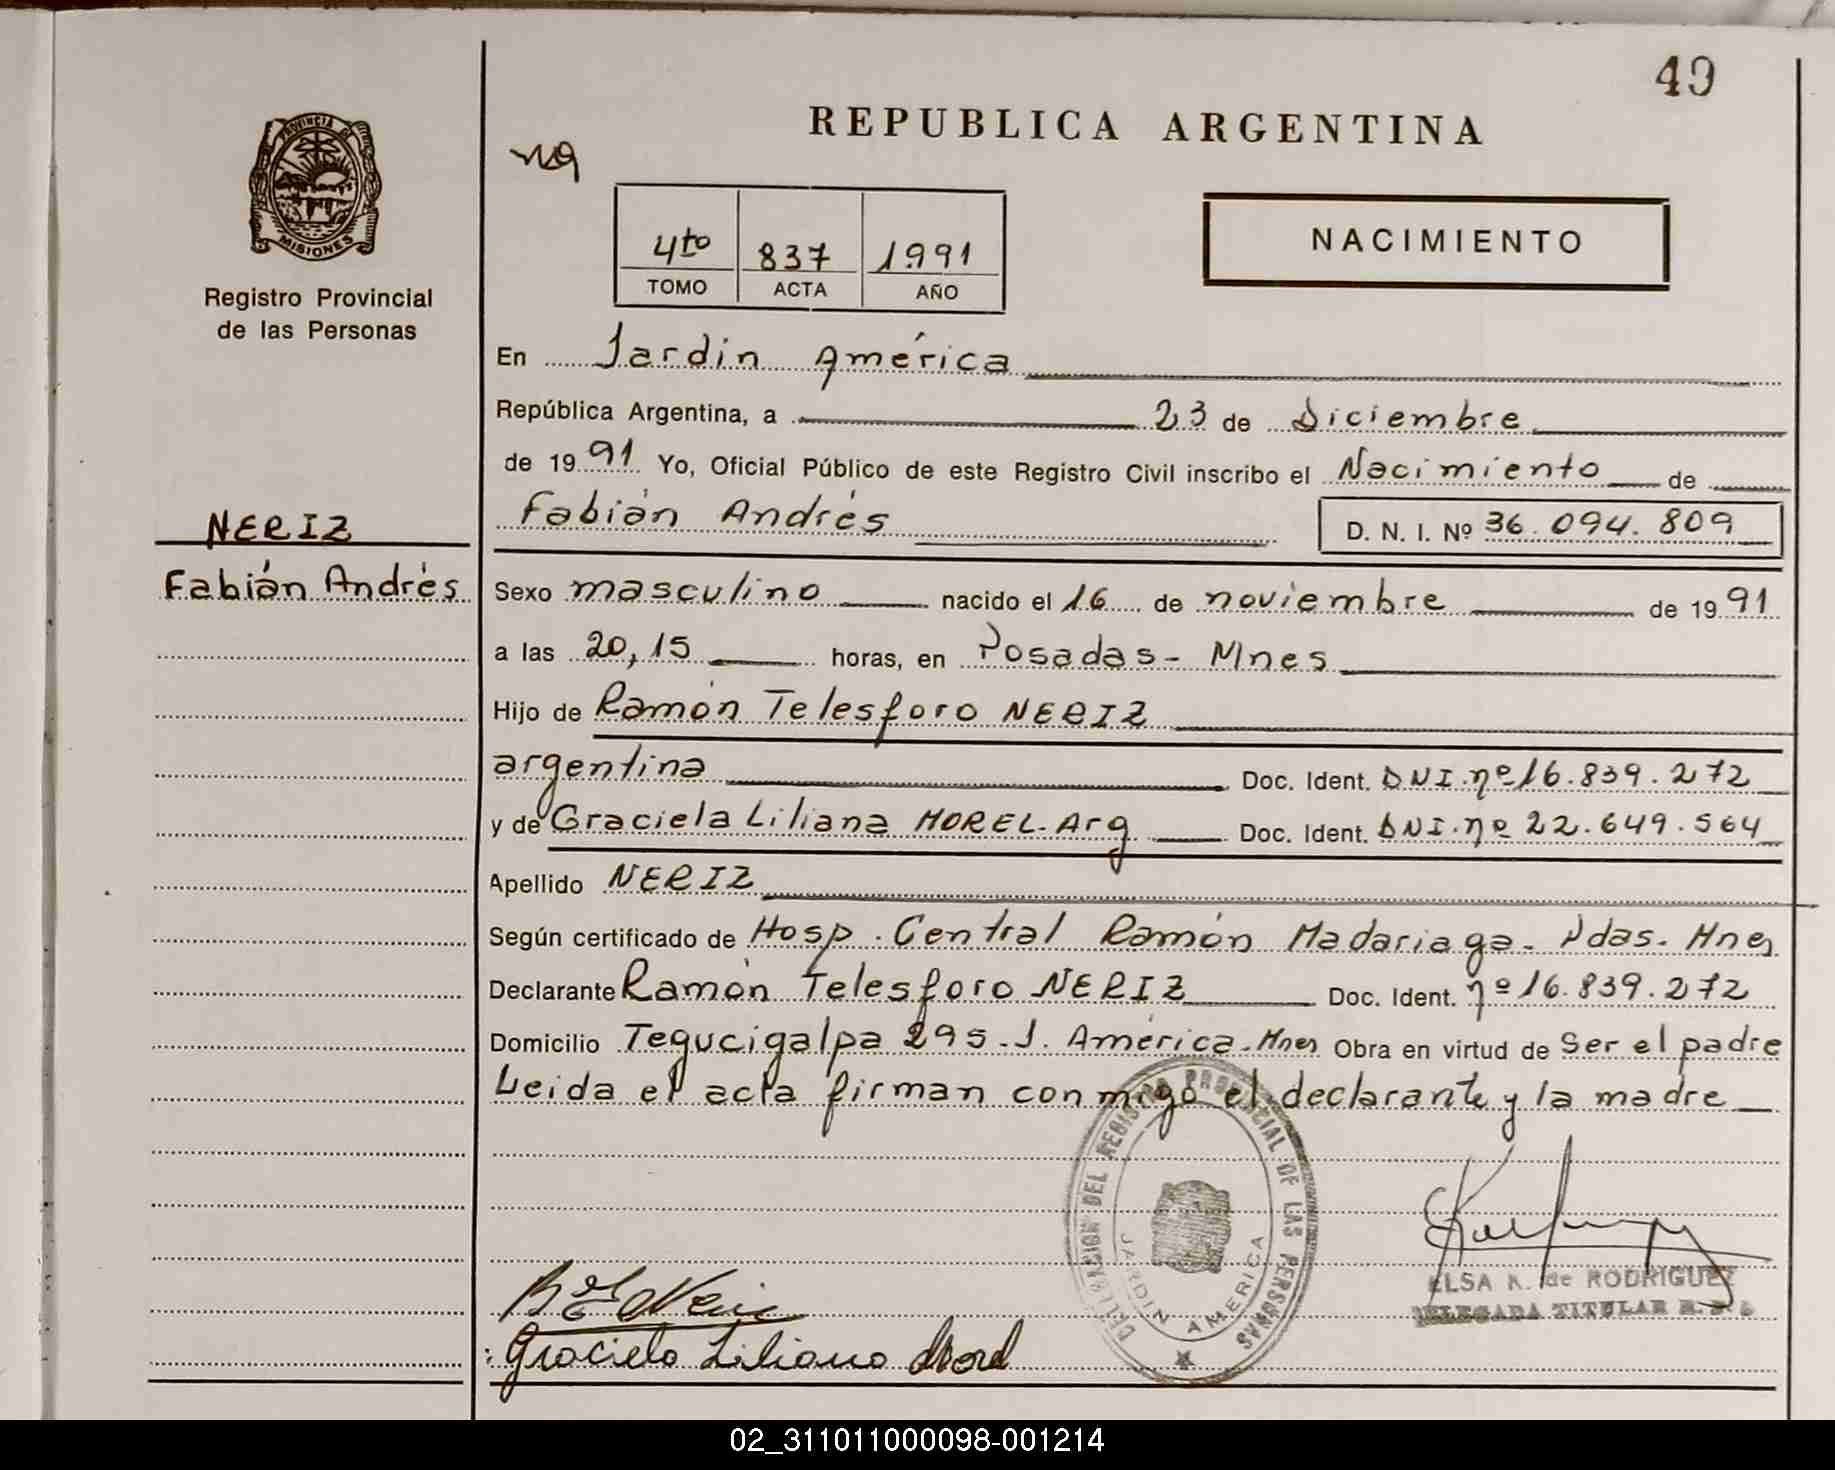 49
REPUBLICA ARGENTINA
PROVINCIA DE
MISIONES
Registro Provincial
de las Personas
4to 837 1991
TOMO ACTA AÑO
NACIMIENTO
En Jardín América
República Argentina, a 23 de Diciembre
de 1991 Yo, Oficial Público de este Registro Civil inscribo el Nacimiento de
NERIZ
Fabián Andrés
Fabián Andrés D. N. I. Nº 36.094.809
Sexo masculino nacido el 16 de noviembre de 1991
a las 20,15 horas, en Posadas - Mnes
Hijo de Ramón Telesforo NERIZ
argentina Doc. Ident. DNI.nº16.839.272
y de Graciela Liliana MOREL-Arg Doc. Ident. DNI.nº 22.649.564
Apellido NERIZ
Según certificado de Hosp. Central Ramón Madariaga. Pdas. Mnes
Declarante Ramón Telesforo NERIZ Doc. Ident. nº16.839.272
Domicilio Tegucigalpa 295 - J. América - Mnes Obra en virtud de Ser el padre
Leida el acta firman conmigo el declarante y la madre
DELEGACION DEL REGISTRO PROVINCIAL DE LAS PERSONAS
JARDIN AMERICA
ELSA K. de RODRIGUEZ
DELEGADA TITULAR R. P.
Graciela Liliana Morel
02_311011000098-001214